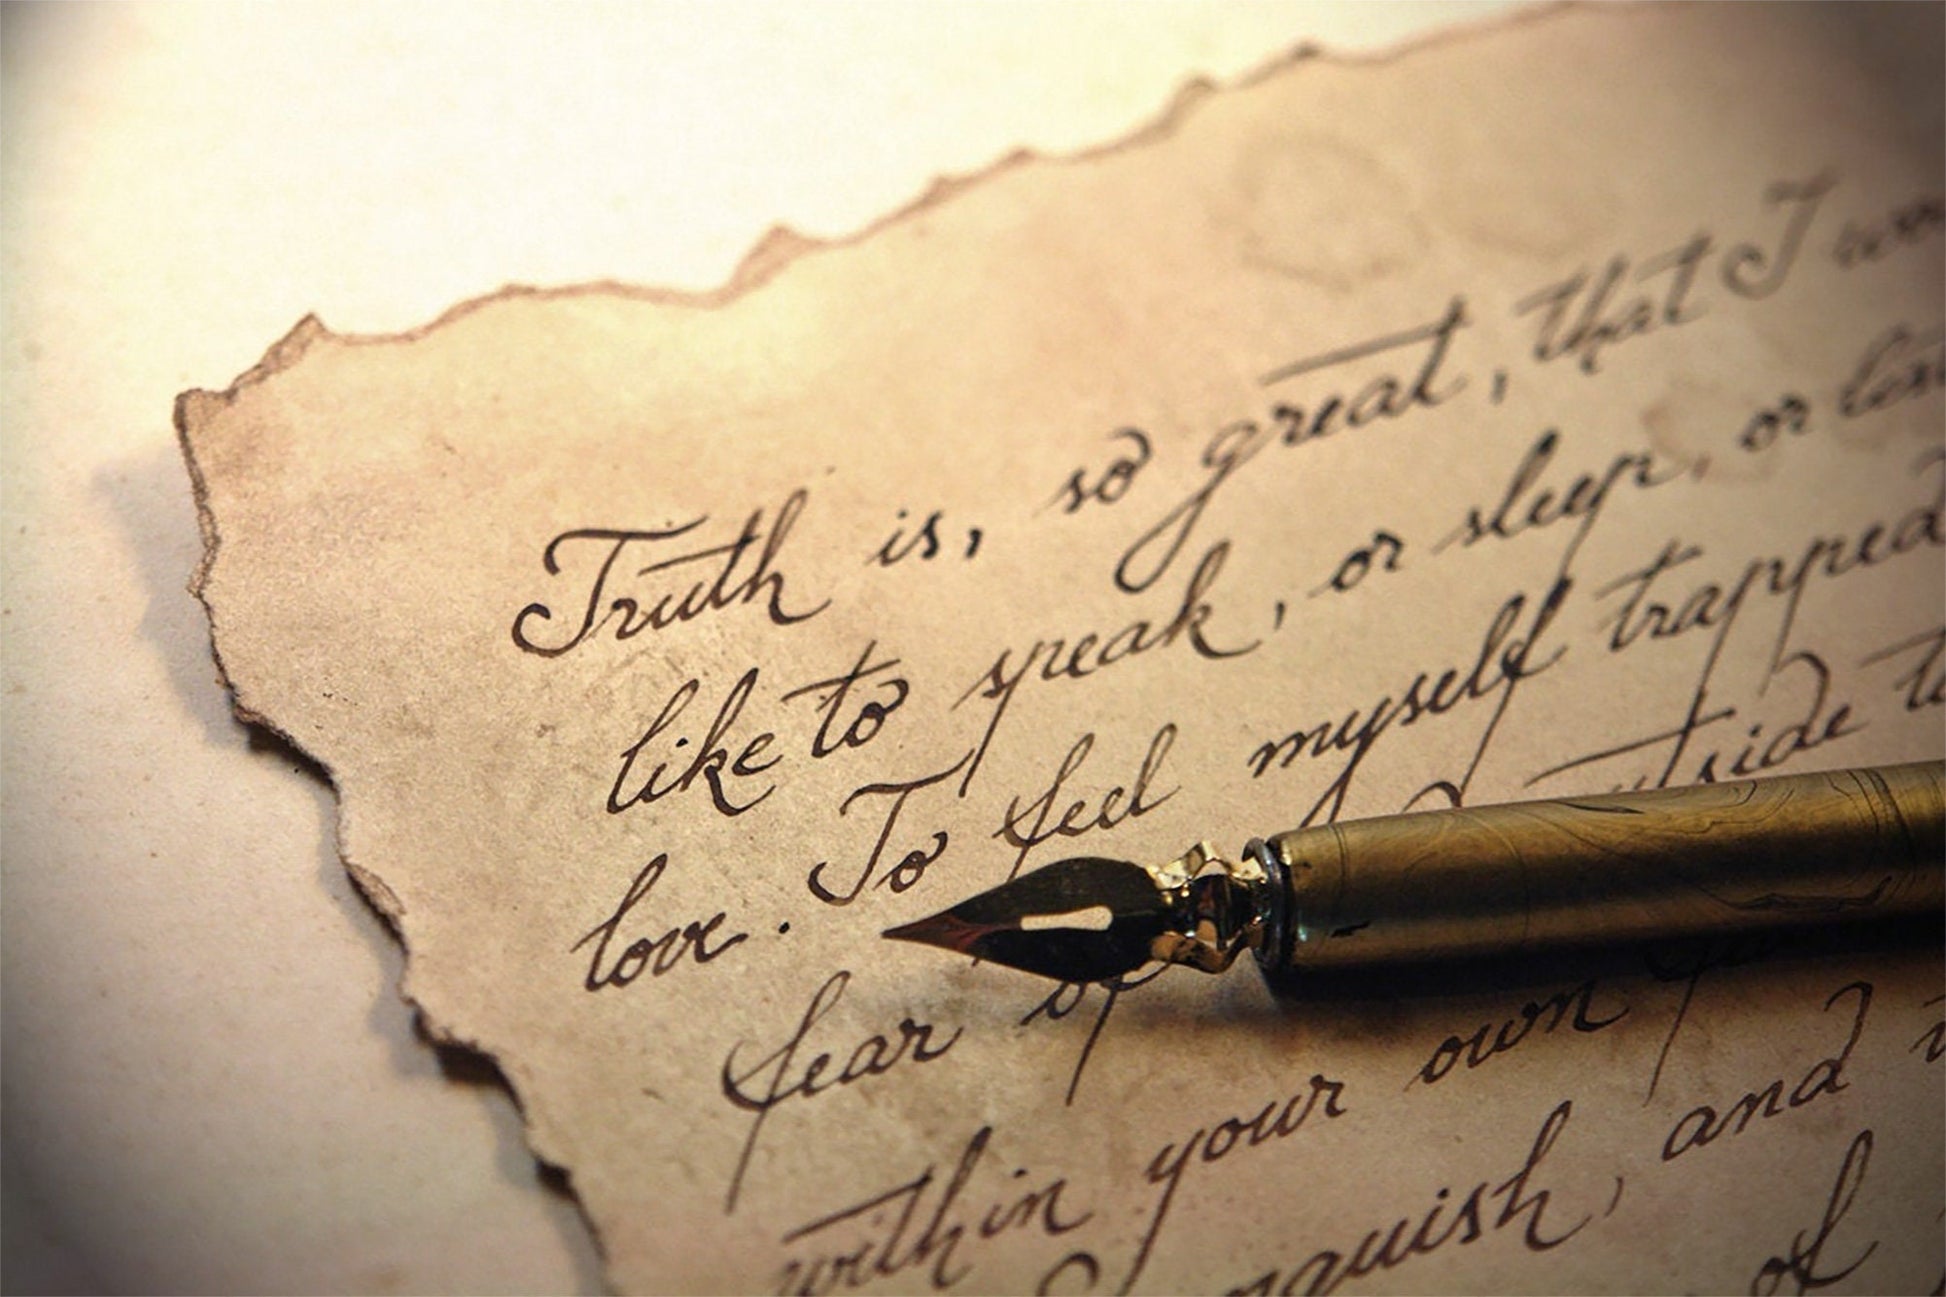 Truth is, so great, that I
like to speak, or sleep, or
love. To feel myself trapped
fear of outside
within your own
and
of